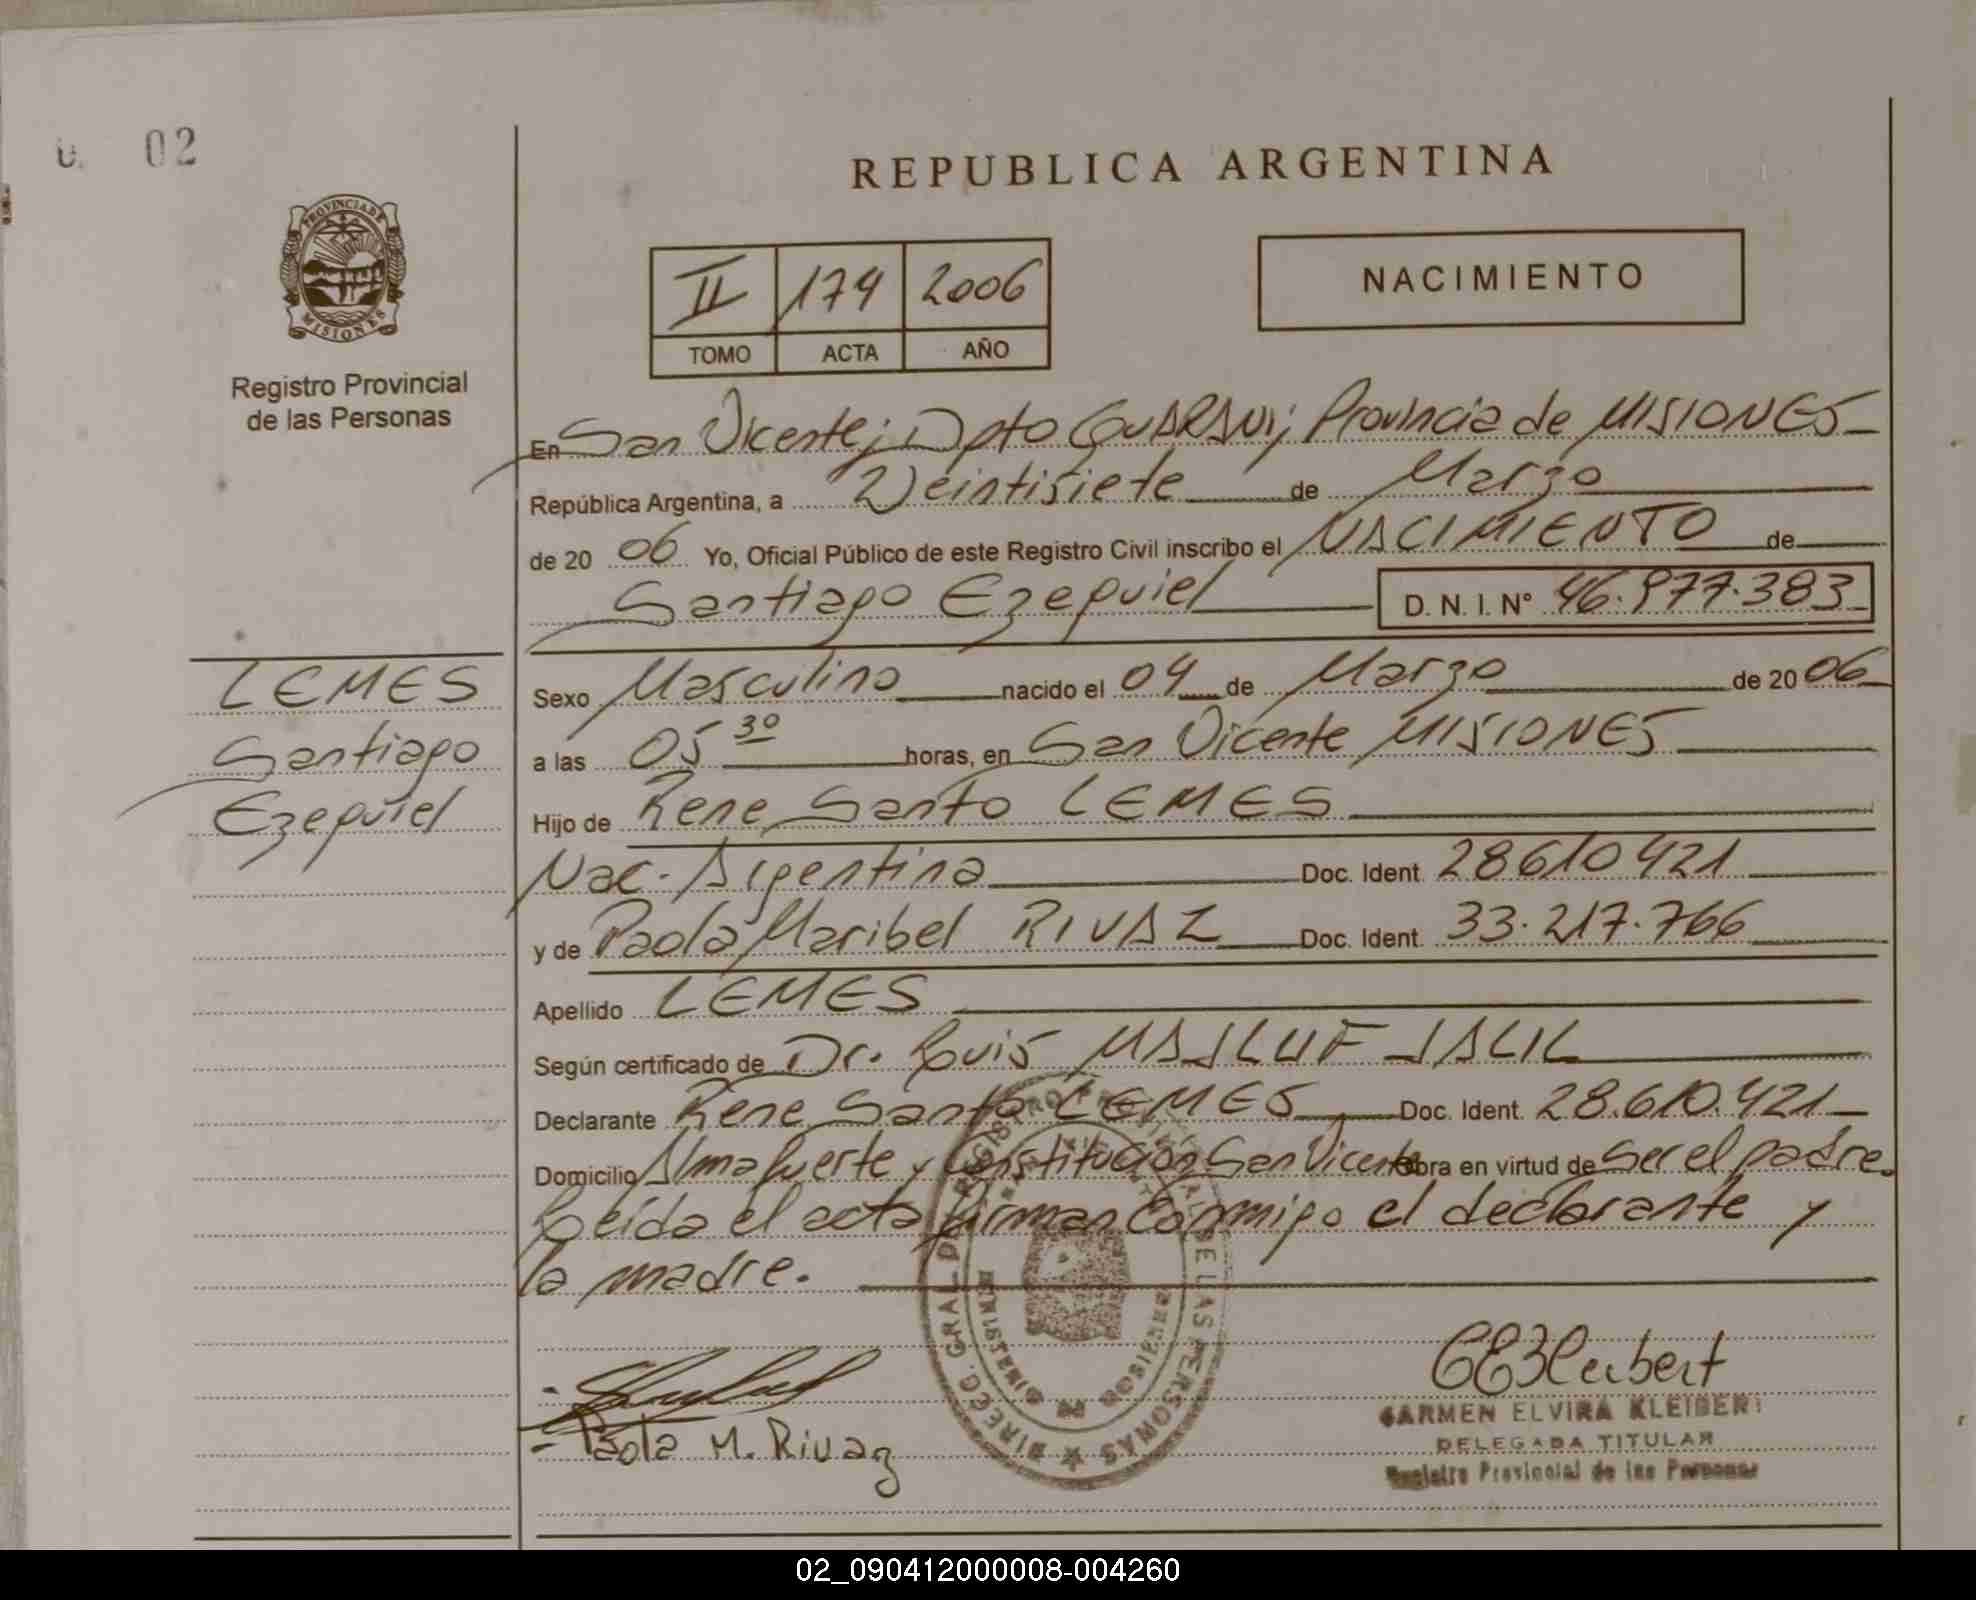 02
PROVINCIA DE
MISIONES
Registro Provincial
de las Personas
LEMES
Santiago
Ezequiel
REPUBLICA ARGENTINA
II 174 2006
TOMO ACTA AÑO
NACIMIENTO
En San Vicente; Dpto GUARANI; Provincia de MISIONES
República Argentina, a Veintisiete de Marzo
de 20 06 Yo, Oficial Público de este Registro Civil inscribo el NACIMIENTO de
Santiago Ezequiel D. N. I. N° 46.977.383
Sexo Masculino nacido el 04 de Marzo de 20 06
a las 05 30 horas, en San Vicente MISIONES
Hijo de Rene Santo LEMES
Nac. Argentina Doc. Ident. 28610421
y de Paola Maribel RIVAZ Doc. Ident. 33.217.766
Apellido LEMES
Según certificado de Dr. Luis MAJLUF JALIL
Declarante Rene Santo LEMES Doc. Ident. 28.610.421
Domicilio Almafuerte y Constitución San Vicente obra en virtud de ser el padre.
Leída el acta firman conmigo el declarante y
la madre.
Paola M. Rivaz
CARMEN ELVIRA KLEIBERT
DELEGADA TITULAR
Registro Provincial de las Personas
02_090412000008-004260